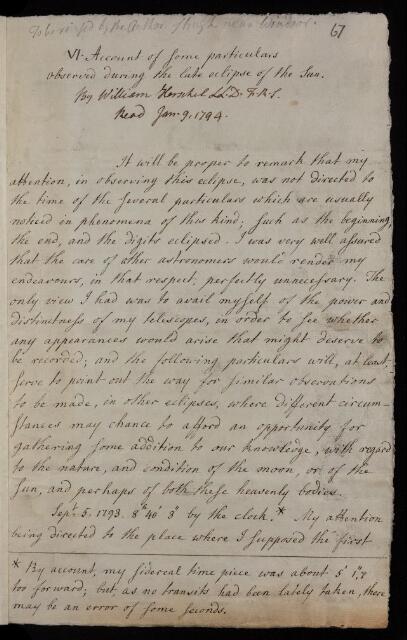 To be revised by the Author. Slough near Windsor.
67
VI. Account of some particulars
observed during the late eclipse of the Sun.
By William Herschel LL.D. F.R.S.
Read Jan. 9. 1794.
It will be proper to remark that my
attention, in observing this eclipse, was not directed to
the time of the several particulars which are usually
noticed in phenomena of this kind; such as the beginning,
the end, and the digits eclipsed. I was very well assured
that the care of other astronomers would render my
endeavours, in that respect, perfectly unnecessary. The
only view I had was to avail myself of the power and
distinctness of my telescopes, in order to see whether
any appearances would arise that might deserve to
be recorded; and the following particulars will, at least,
serve to point out the way for similar observations
to be made, in other eclipses, where different circum-
stances may chance to afford an opportunity for
gathering some addition to our knowledge, with regard
to the nature, and condition of the moon, or of the
sun, and perhaps of both these heavenly bodies.
Sepr. 5. 1793. 8h 40' 3" by the clock.* My attention
being directed to the place where I supposed the first
* By account, my sidereal time piece was about 5' 1",8
too forward; but as no transits had been lately taken, there
may be an error of some seconds.